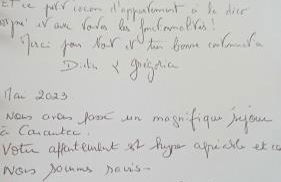 Et ce petit cocon d'appartement à la déco
et avec toutes les fonctionnalités !
Merci pour tout et très bonne continuation
& Grégoire
Mai 2023.
Nous avons passé un magnifique séjour
à Carantec.
Votre appartement est hyper agréable et
Nous sommes ravis-